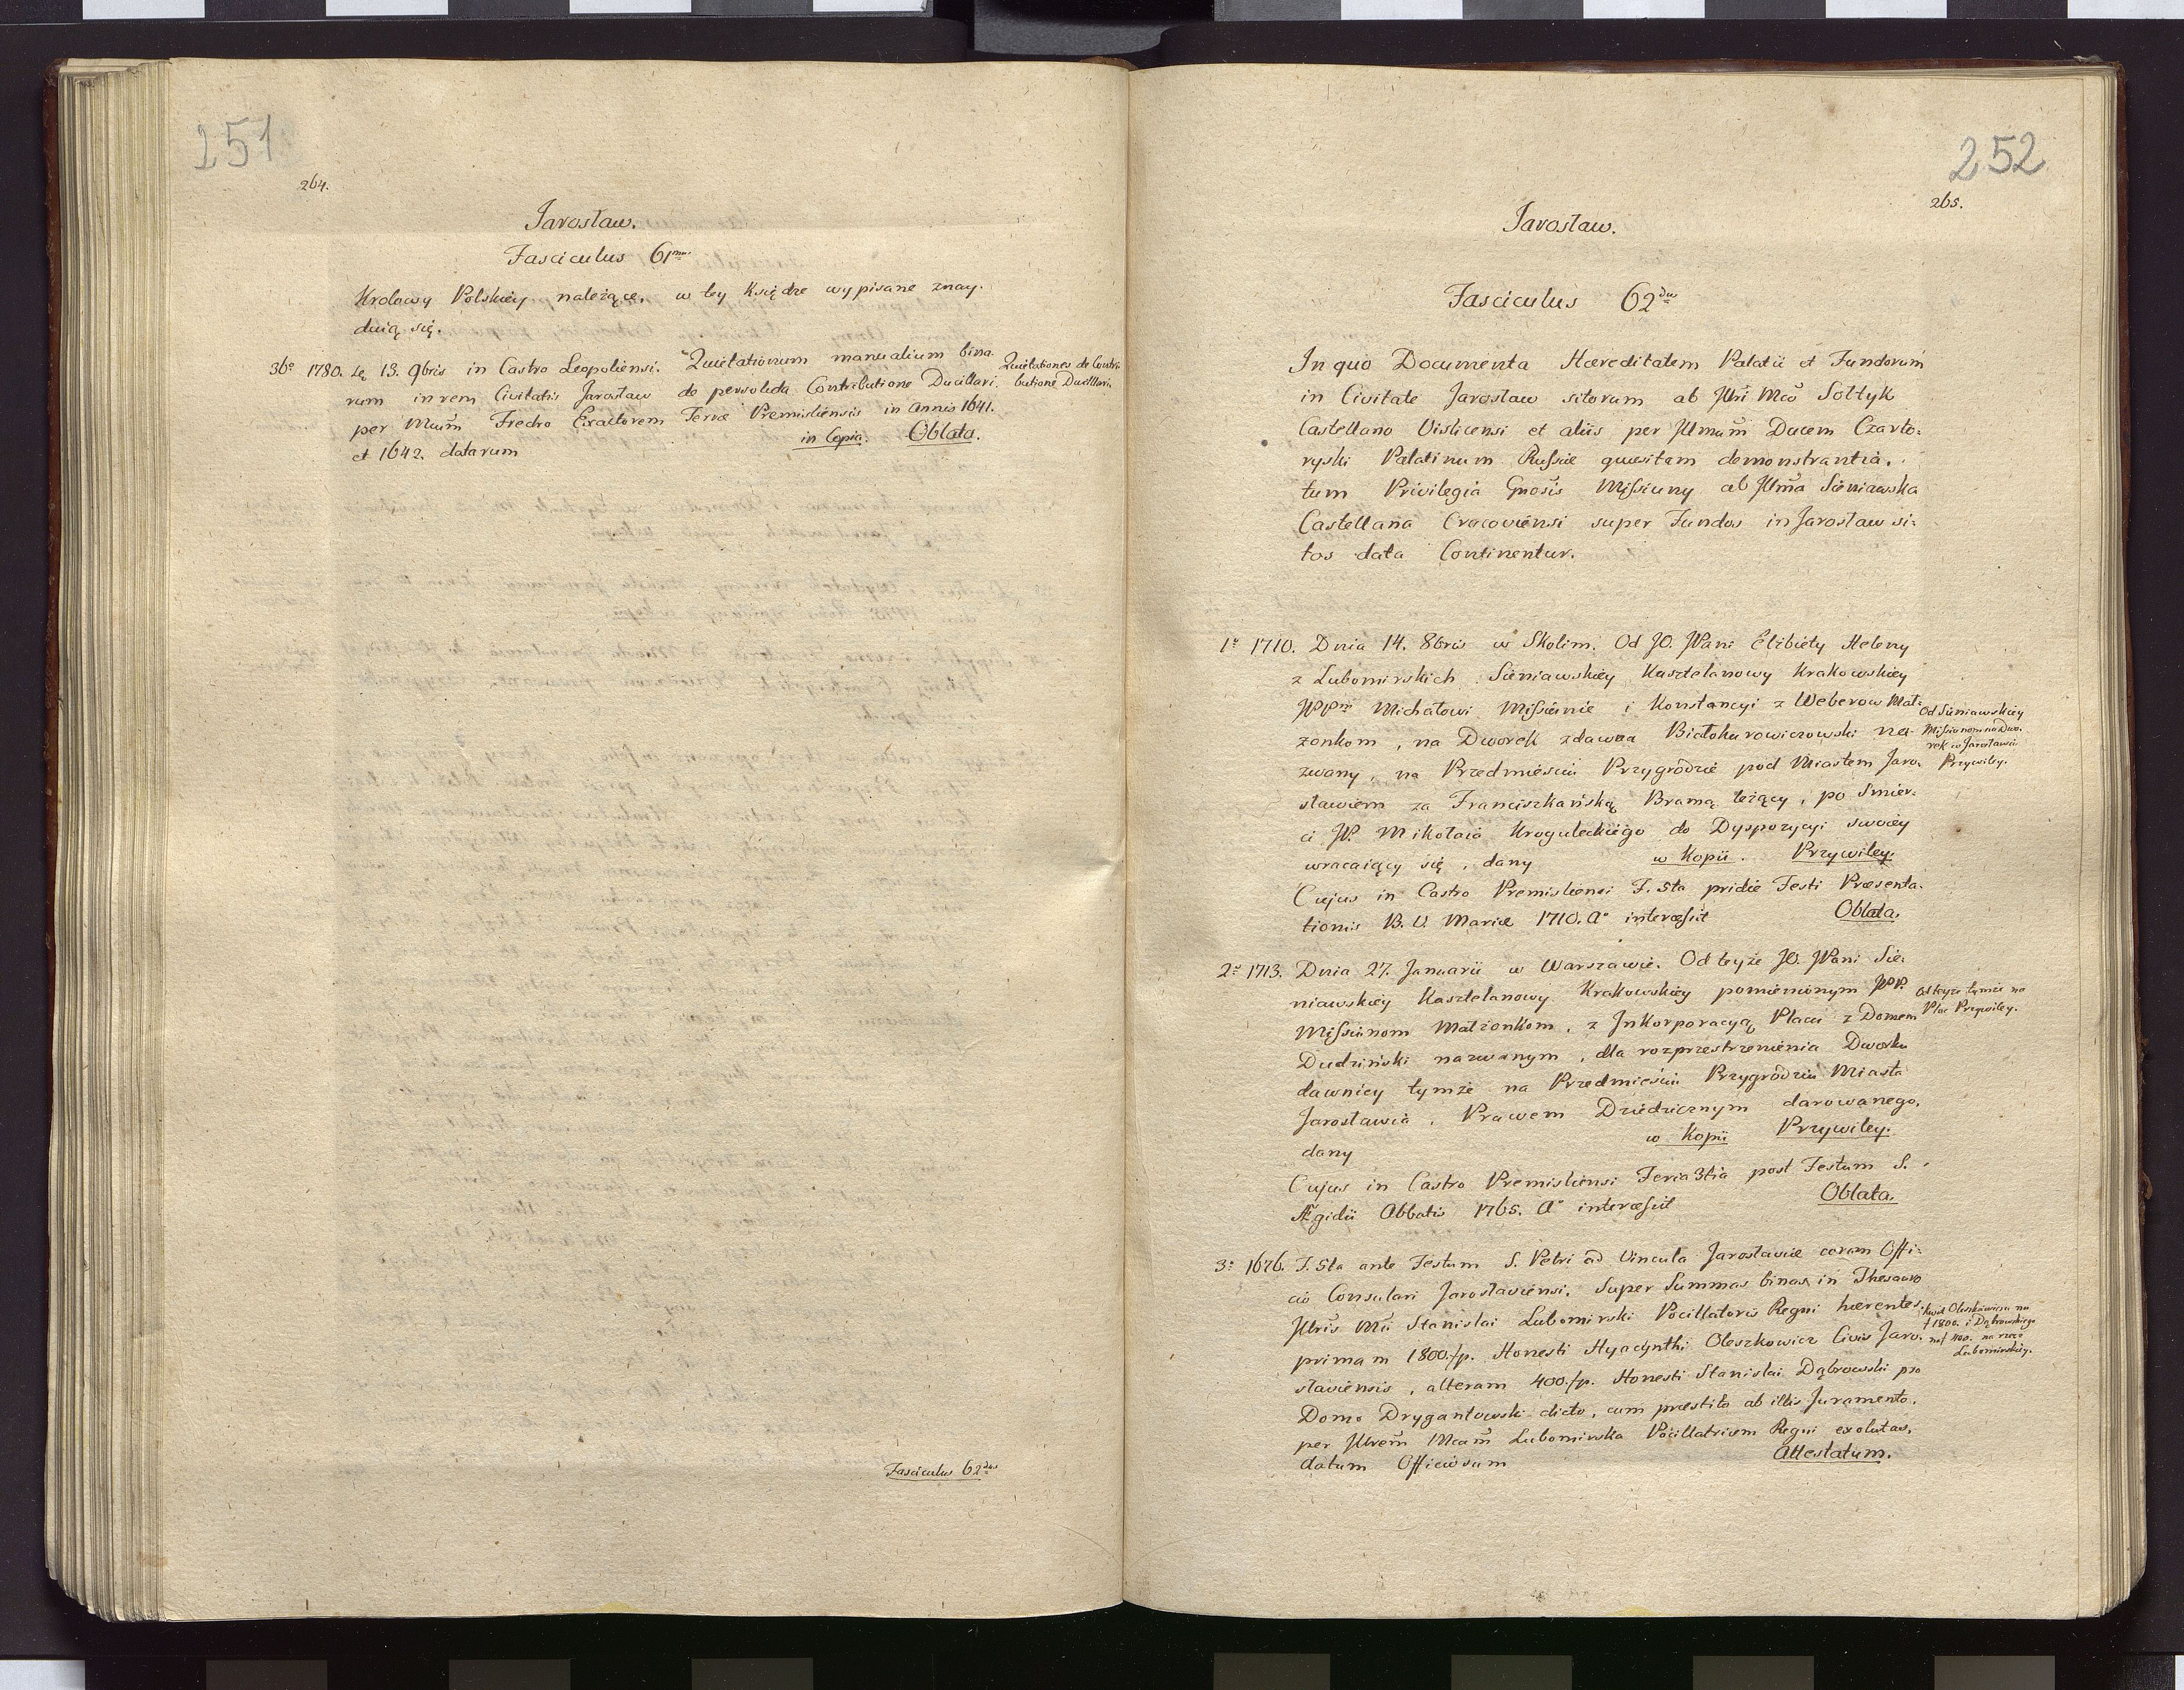 251
264.
Jarosław.
Fasciculus 61mus
Krolowy Polskiey należące, w tey Księdze wypisane znay-
duią się.
36o 1780. Die 13. 9bris in Castro Leopoliensi. Quietationum manualium bina-
rum in rem Civitatis Jarosław de persoluta Contributione Ducillari.
per Mcum Fredro Exactorem Terræ Premisliensis in Annis 1641.
et 1642. datarum in Copia. Oblata.
Quietationes de Contri-
butione Ducillari.
Fasciculus 62dus
252
265.
Jarosław.
Fasciculus 62dus
In quo Documenta Hæreditatem Palatii et Fundorum
in Civitate Jarosław sitorum ab Illri Mco Sołtyk
Castellano Visliciensi et aliis per Illmum Ducem Czarto-
ryski Palatinum Russiæ quæsitam demonstrantia,
tum Privilegia Gnosis Missiuny ab Illma Sieniawska
Castellana Cracoviensi super Fundos in Jarosław si-
tos data Continentur.
1o 1710. Dnia 14. 8bris w Skolim. Od JO. JPani Elżbiety Heleny
z Lubomirskich Sieniawskiey Kasztelanowy Krakowskiey
JPPm Michałowi Missiunie i Konstancyi z Weberow Mał-
żonkom, na Dworek zdawna Białokurowiczowski na-
zwany, na Przedmieściu Przygrodzie pod Miastem Jaro-
sławiem za Franciszkańską Bramą leżący, po Smier-
ci JP. Mikołaia Kroguleckiego do Dyspozycyi swoiey
wracaiący się, dany w Kopii. Przywiley.
Od Sieniawskiey
Missiunom na Dwo-
rek w Jarosławiu
Przywiley.
Cujus in Castro Premisliensi F. 5ta pridie Festi Præsenta-
tionis B. V. Mariæ 1710. Ao intercessit Oblata.
2o 1713. Dnia 27. Januarii w Warszawie. Od teyże JO. JPani Sie-
niawskiey Kasztelanowy Krakowskiey pomienionym JPP.
Missiunom Małżonkom, z Inkorporacyą Placu z Domem
Dudziński nazwanym, dla rozprzestrzenienia Dworku
dawniey tymże na Przedmieściu Przygrodziu Miasta
Jarosławia, Prawem Dziedzicznym darowanego,
dany w Kopii Przywiley.
Od teyże tymże na
Plac Przywiley.
Cujus in Castro Premisliensi Feria 3tia post Festum S.
Ægidii Abbatis 1765. Ao intercessit Oblata.
3o 1676. F. 5ta ante Festum S. Petri ad Vincula Jaroslaviæ coram Offi-
cio Consulari Jaroslaviensi. Super Summas binas in Thesauro
Illris Mci Stanislai Lubomirski Pocillatoris Regni hærentes,
primam 1800 fp. Honesti Hyacynthi Oleszkowicz Civis Jaro-
slaviensis, alteram 400. fp. Honesti Stanislai Dąbrowski pro
Domo Drygantowski dicto, cum præstito ab illis Juramento,
per Illrem Mcam Lubomirska Pocillatricem Regni exolutas,
datum Officiosum Attestatum.
Kwit Oleszkowicza na
f 1800. i Dąbrowskiego
na f 400. na rzecz
Lubomirskiey.